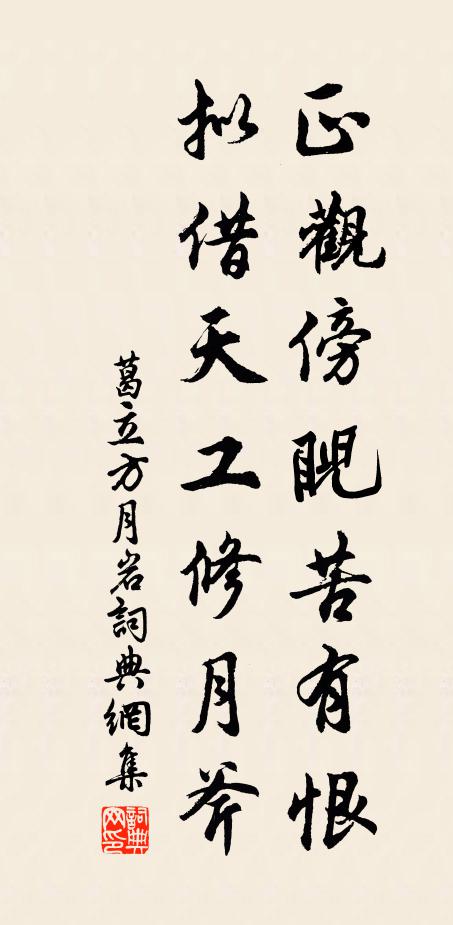 正觀傍睨苦有恨
拟借天工修月斧
葛立方月岩詞典網集
詞典網印